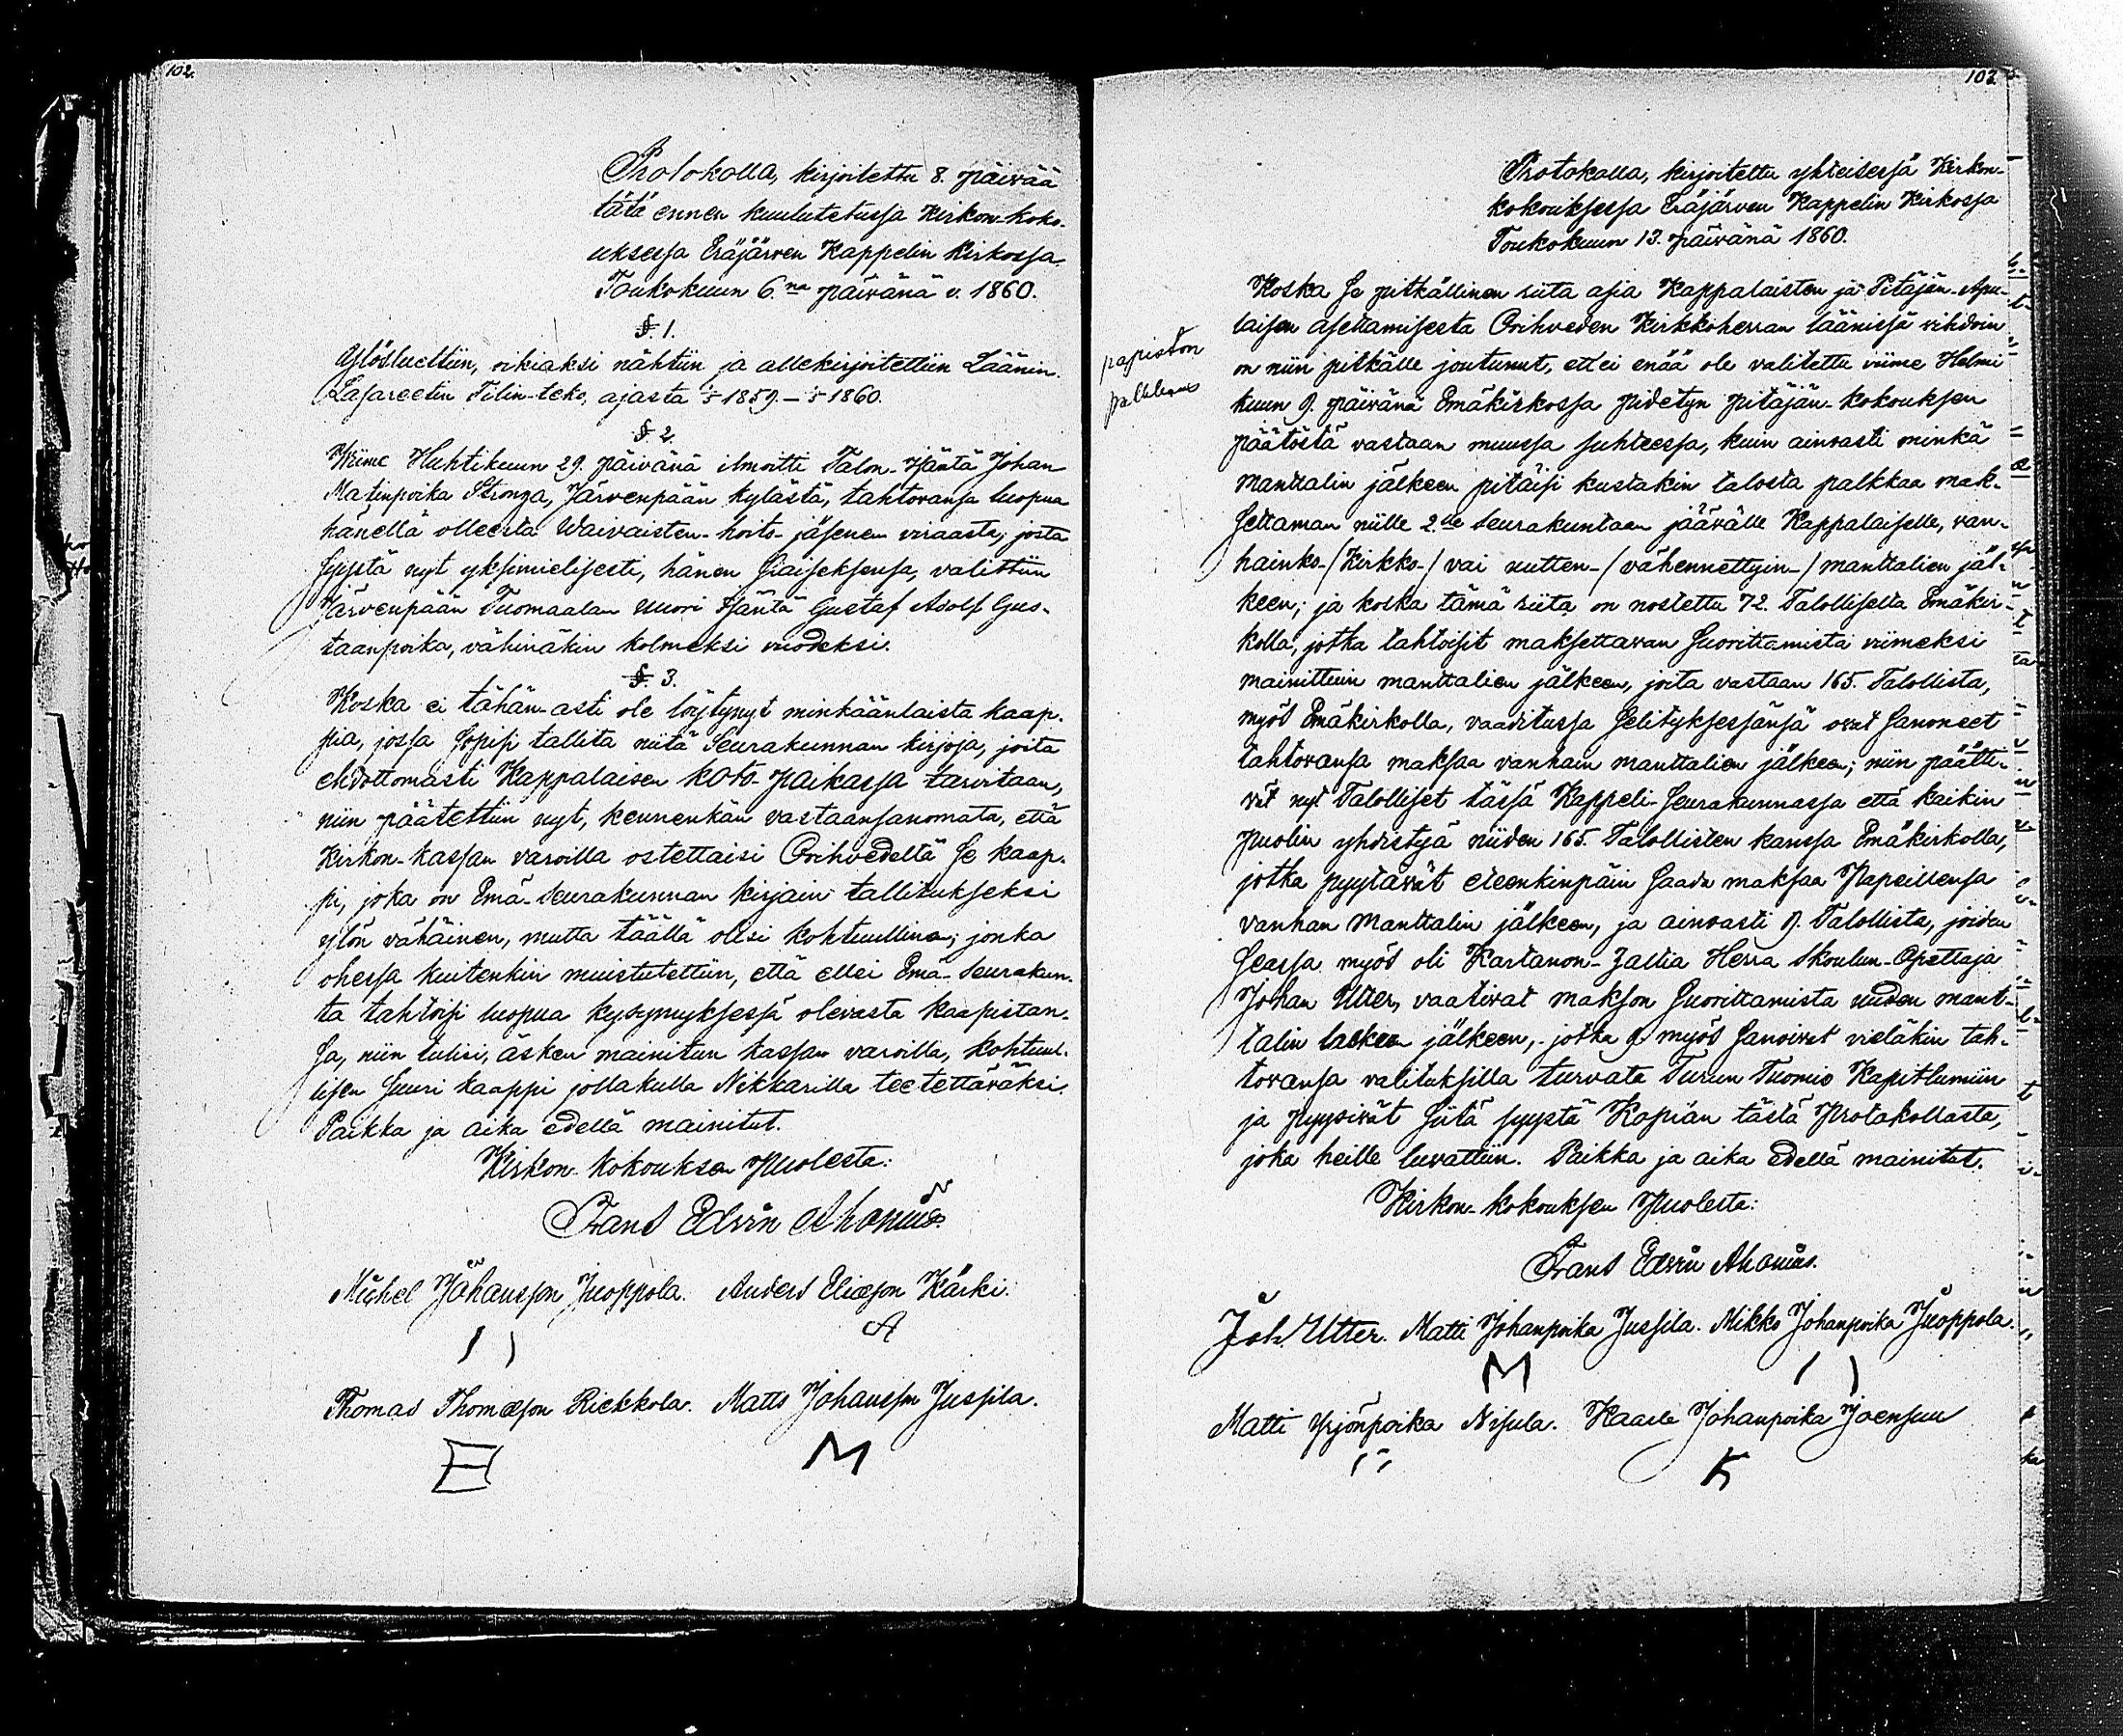 102.
Protokolla, kirjoitettu 8. päivää
tätä ennen kuulutetussa Kirkon-koko-
uksessa Eräjärven Kappelin kirkossa
Toukokuun 6.na päivänä v. 1860.
§. 1.
Ylösluettiin, oikiaksi nähtiin ja allekirjoitettiin Läänin-
Lasareetin Tilin-teko, ajasta 1/5 1859 - 1/5 1860.
§. 2.
Wiime Huhtikuun 29. päivänä ilmoitti Talon-Isäntä Johan
Matinpoika Stronga, Järvenpään kylästä, tahtovansa luopua
hänellä olleesta Waivaisten-hoito-jäsenen viraasta; josta
syystä nyt yksimielisesti, hänen siaiseksensa, valittiin
Järvenpään Tuomaalan nuori Isäntä Gustaf Adolf Gus-
taanpoika, vähinäkin kolmeksi vuodeksi.
§. 3.
Koska ei tähän-asti ole löytynyt minkäänlaista kaap-
pia, jossa sopisi tallita niitä Seurakunnan kirjoja, joita
ehdottomasti Kappalaisen koto-paikassa tarvitaan,
niin päätettiin nyt, kennenkän vastaansanomata, että
Kirkon-kassan varoilla ostettaisi Orihvedeltä se kaap-
pi, joka on Emä-Seurakunnan kirjain tallitukseksi
ylön vähäinen, mutta täällä olisi kohtuullinen; jonka
ohessa kuitenkin muistutettiin, että ellei Emä-Seurakun-
ta tahtoisi luopua kysymyksessä olevasta kaapistan-
sa, niin tulisi, äsken mainitun kassan varoilla, kohtuul-
lisen suuri kaappi jollakulla Nikkarilla teetettäväksi.
Paikka ja aika edellä mainitut.
Kirkon-kokouksen puolesta:
Frans Edvin Ahonius.
Michel Johansson Juoppola. Anders Eliasson Kärki.
A
Thomas Thomasson Rickkola. Matts Johansson Jussila.
M
103.
Protokolla, kirjoitettu yhteisessä Kirkon-
kokouksessa Eräjärven Kappelin Kirkossa
Toukokuun 13. päivänä 1860.
papiston
palkkaus
Koska se pitkällinen riita asia Kappalaisten ja Pitäjän-Apu-
laisen asettamisesta Orihveden Kirkkoherran läänissä vihdoin
on niin pitkälle joutunut, ett ei enää ole valitettu viime Helmi
kuun 9. päivänä Emäkirkossa pidetyn pitäjän-kokouksen
päätöstä vastaan muussa suhteessa, kuin ainoasti minkä
manttalin jälkeen pitäisi kustakin talosta palkkaa mak-
settaman niille 2.lle Seurakuntaan jäävälle Kappalaiselle, van-
hainko-/Kirkko-/ vai uutten-/vähennettyin-/ manttalien jäl-
keen; ja koska tämä riita on nostettu 72. Talolliselta Emäkir-
kolla, jotka tahtoisit maksettavan suorittamista viimeksi
mainittuin manttalien jälkeen, joita vastaan 165. Talollista,
myös Emäkirkolla, vaaditussa selityksessänsä ovat sanoneet
tahtovansa maksaa vanhain manttalien jälkeen; niin päätti-
vät nyt Talolliset tässä Kappeli-Seurakunnassa että kaikin
puolin yhdistyä niiden 165. Talollisten kanssa Emäkirkolla,
jotka pyytävät eteenkinpäin saada maksaa Papeillensa
vanhan Manttalin jälkeen, ja ainoasti 9. Talollista, joiden
seassa myös oli Kartanon-Haltia Herra Skoulun-Opettaja
Johan Utter, vaativat makson suorittamista uuden mant-
talin jälkeen, jotka 9 myös sanoivat vieläkin tah-
tovansa valituksilla turvata Turun Tuomio Kapitlumiin
ja pyysivät siitä syystä Kopian tästä Protakollasta,
joka heille luvattiin. Paikka ja aika edellä mainitut.
Kirkon-kokouksen puolesta:
Frans Edvin Ahonius.
Joh. Utter. Matti Johanpoika Jussila. Mikko Johanpoika Juoppola.
M
Matti Yrjönpoika Nisula. Kaarle Johanpoika Joensuu
K